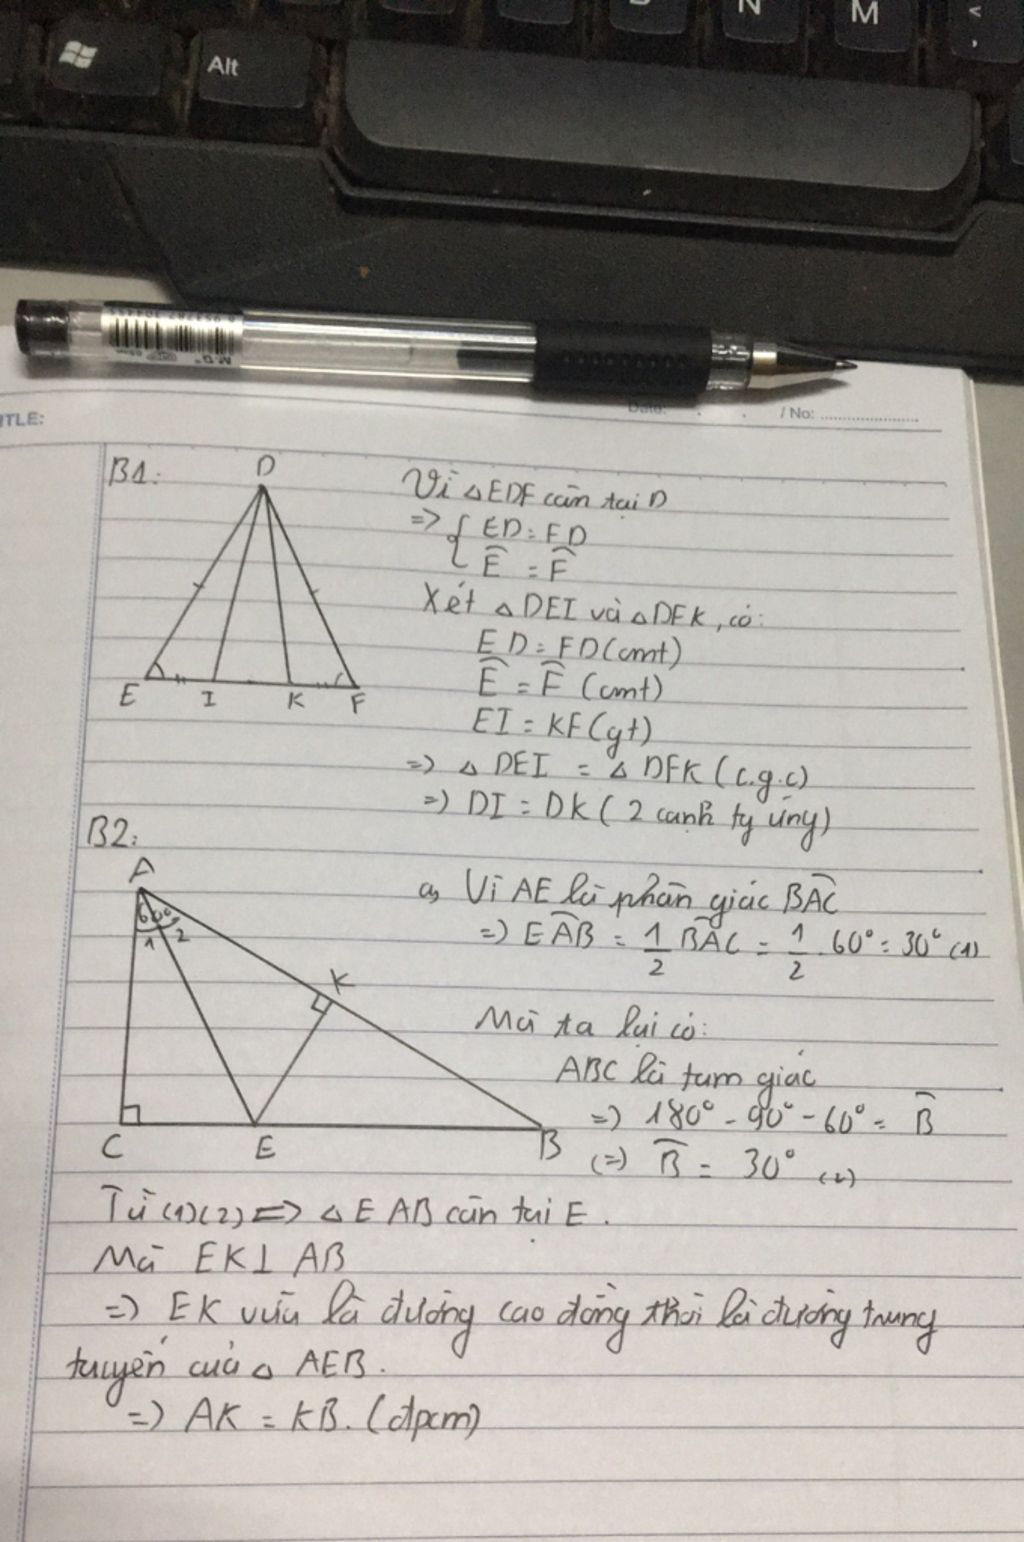 Alt
N
M
<
,
TLE:
Date: . . / No:
B1:
D
E I K F
Vì △EDF cân tại D
=> { ED = FD
Ê = F̂
Xét △DEI và △DFK, có:
ED = FD (cmt)
Ê = F̂ (cmt)
EI = KF (gt)
=> △ DEI = △ DFK (c.g.c)
=> DI = DK ( 2 cạnh tg ứng)
B2:
A
60°
1 2
K
C E B
a, Vì AE là phân giác BÂC
=> EÂB = 1/2 BÂC = 1/2 . 60° = 30° (1)
Mà ta lại có:
ABC là tam giác
=> 180° - 90° - 60° = B̂
(=) B̂ = 30° (2)
Từ (1)(2) => △ EAB cân tại E.
Mà EK⊥ AB
=> EK vừa là đường cao đồng thời là đường trung
tuyến của △ AEB.
=> AK = KB. (đpcm)